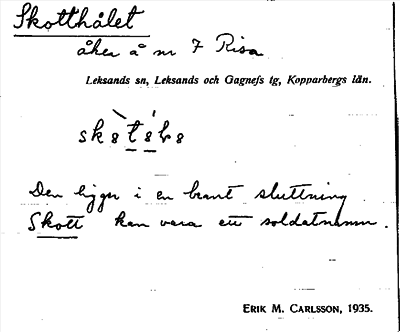 Skotthålet
åker å nr 7 Risa
Leksands sn, Leksands och Gagnefs tg, Kopparbergs län.
Den ligger i en brant sluttning.
Skott kan vara ett soldatnamn.
ERIK M. CARLSSON, 1935.